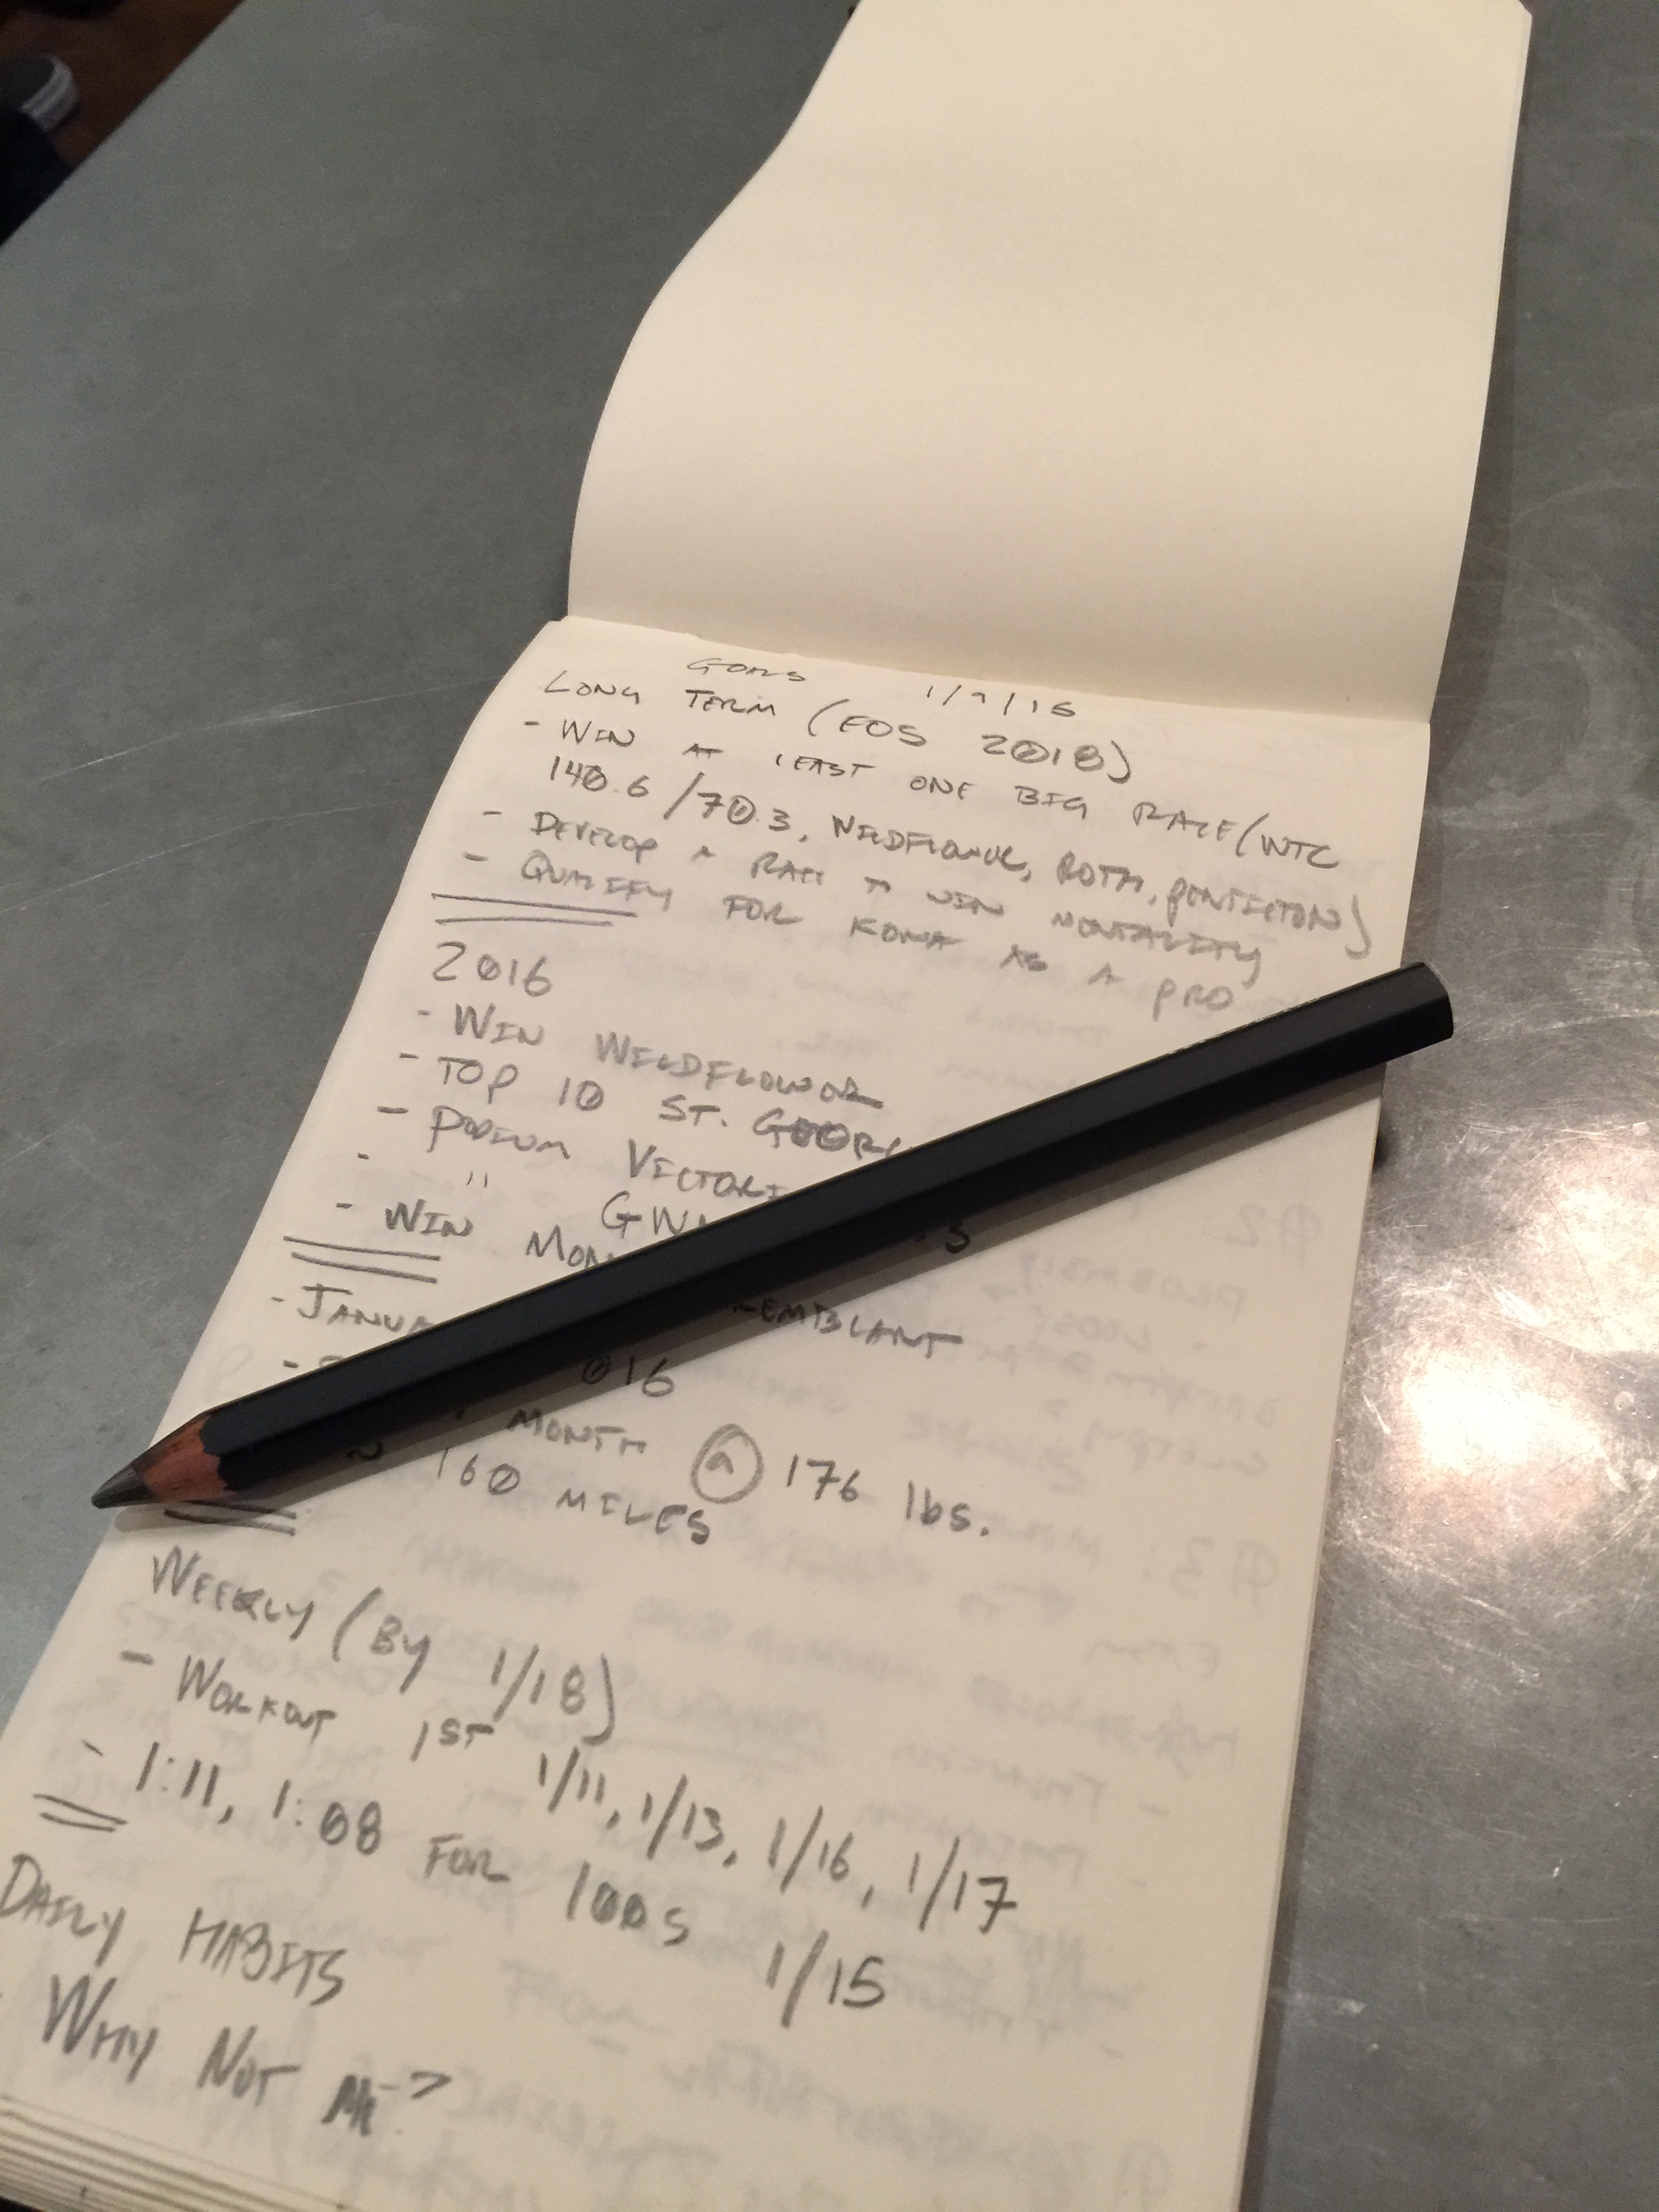 GOALS 1/9/16
LONG TERM (EOS 2018)
- WIN AT LEAST ONE BIG RACE (WTC
140.6/70.3, WILDFLOWER, ROTH, PENTICTON)
- DEVELOP A RACE TO WIN MENTALITY
- QUALIFY FOR KONA AS A PRO
2016
- WIN WILDFLOWER
- TOP 10 ST.
- PODIUM
- "
- WIN
-
016
MONTH @ 176 lbs.
160 MILES
WEEKLY (BY 1/18)
- WORKOUT 1ST 1/11, 1/13, 1/16, 1/17
- 1:11, 1:08 FOR 100s 1/15
DAILY HABITS
WHY NOT ME?